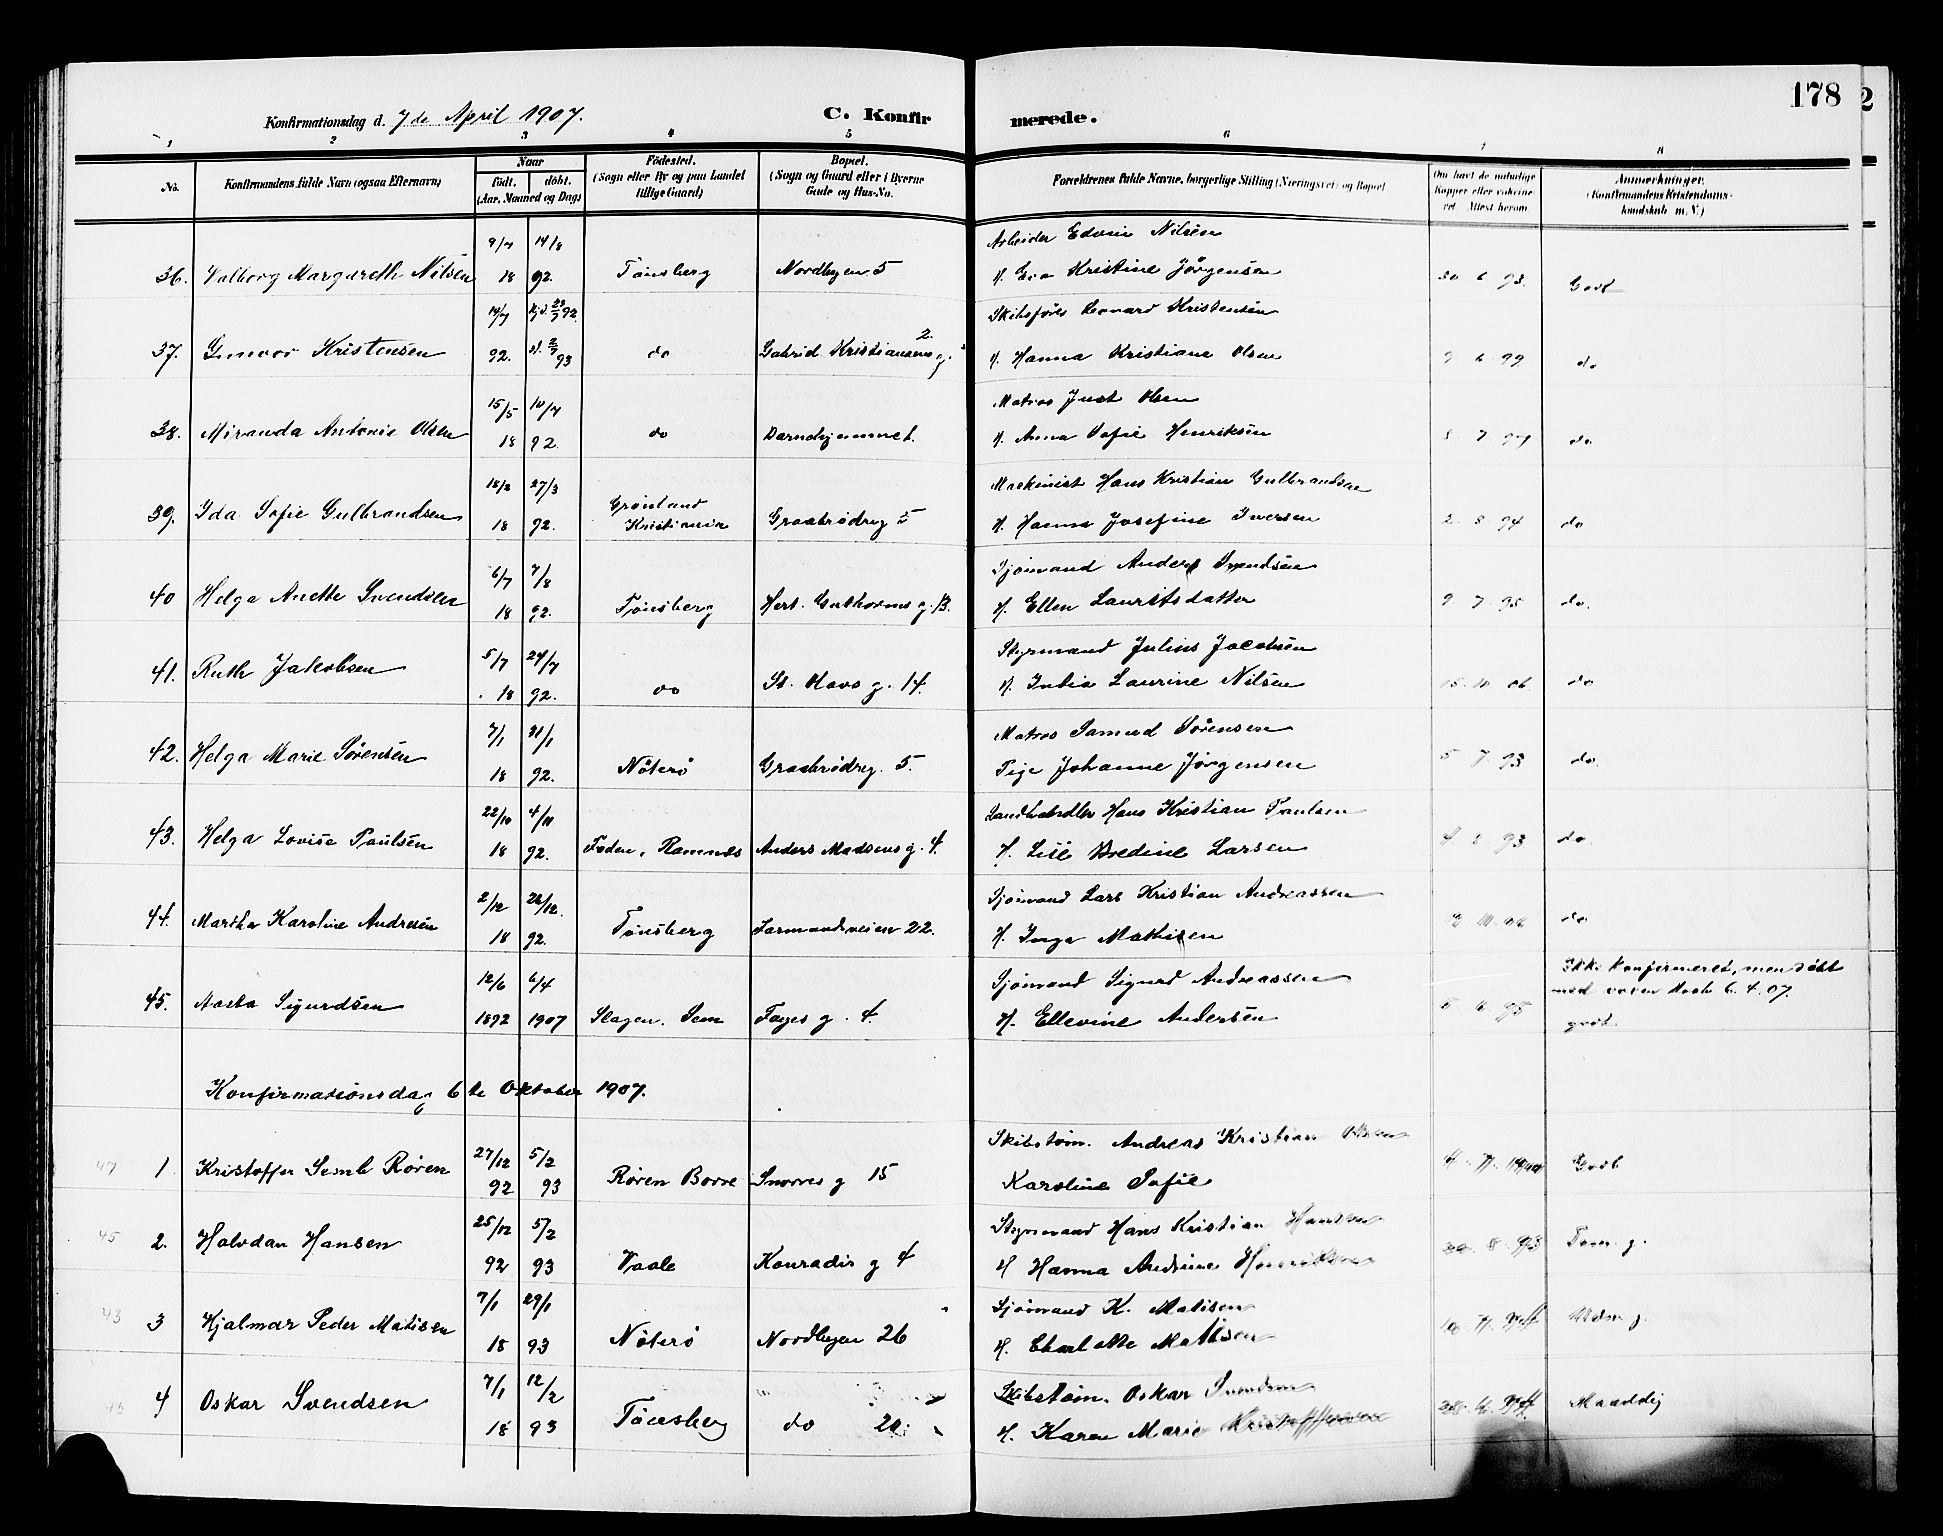 178
2
Konfirmationsdag d. 7de April 1907.
C. Konfirmerede.
1 2 3 4 5 6 7 8
No.
Konfirmandens fulde Navn (ogsaa Efternavn)
Naar
født. døbt.
(Aar, Maaned og Dag)
Fødested.
(Sogn eller By og paa Landet
tillige Gaard)
Bopæl.
(Sogn og Gaard eller i Byerne
Gade og Hus-No.
Forældrenes fulde Navne, borgerlige Stilling (Næringsvei) og Bopæl.
Om havt de naturlige
Kopper eller vakcineret.
Attest herom.
Anmærkninger.
(Konfirmandens Kristendomskundskab
m. V.)
9/7 14/8 Arbeider Edvin Nilsen
36. Valborg Margareth Nilsen 18 92. Tønsberg Nordbyen 5 H. Eva Kristine Jørgensen 30 6 93. Godt
14/7 Skibsfører Leonard Kristensen
37. Gunvor Kristensen 92. 93 do Gabriel Kristiansens g. 2. H. Hanna Kristiane Olsen 9 6 99 do
15/5 10/7 Matros Just Olsen
38. Miranda Antonie Olsen 18 92. do Barnehjemmet. H. Anna Sofie Henriksen 8 7 97 do
18/2 27/3 Grønland Maskinist Hans Kristian Gulbrandsen
39. Ida Sofie Gulbrandsen 18 92. Kristiania Graabrødreg 5 H. Hanna Josefine Iversen 2. 8 94 do
6/7 7/8 Sjømand Anders Svendsen
40 Helga Anette Svendsen 18 92. Tønsberg Hert. Guthorms g. 13. H. Ellen Lauritsdatter 9 7 95 do.
5/7 24/7 Styrmand Julius Jacobsen
41. Ruth Jakobsen 18 92. do St. Olavs g. 14. H. Intia Laurine Nilsen 15. 10 06. do
7/1 31/1 Matros Samuel Sørensen
42. Helga Marie Sørensen 18 92. Nøterø Graabrødreg. 5. Pige Johanne Jørgensen 5 7 93 do.
22/10 4/11 Landhandler Hans Kristian Paulsen
43. Helga Lovise Paulsen 18 92. Foden, Ramnes Anders Madsens g. 4. H. Lise Bredine Larsen 4 8 93 do
2/12 26/12. Sjømand Lars Kristian Andreassen
44. Martha Karoline Andresen 18 92. Tønsberg Farmandsveien 22. H. Inga Mathisen do
12/6 6/4 Sjømand Sigurd Andreassen Ikke konfirmeret, men døbt
45. Aasta Sigurdsen 1892 1907 Slagen. Sem Fayes g. 4. H. Ellevine Andersen 5 6. 95 6. 4. 07.
godt.
Konfirmationsdag 6te Oktober 1907.
27/12 5/2 Skibstøm. Andreas Kristian Olsen
47 1. Kristoffer Semb Røren 92 93 Røren Borre Snorres g 15 Karoline Sofie Godt
25/12 5/2 Styrmand Hans Kristian Hansen
45 2. Halvdan Hansen 92 93 Vaale Konradis g 4 H Hanna Andrine Henriksen 8. 93 Tem. g.
7/1 29/1 Sjømand K. Matisen
43 3 Hjalmar Peder Matisen 18 93 Nøterø Nordbyen 26 H. Charlotte Matisen Udm. g.
7/1 12/2 Skibstøm. Oskar Svendsen
4 Oskar Svendsen 18 93 Tønsberg do 20. H. Karen Marie Kristoffersen Maadelig